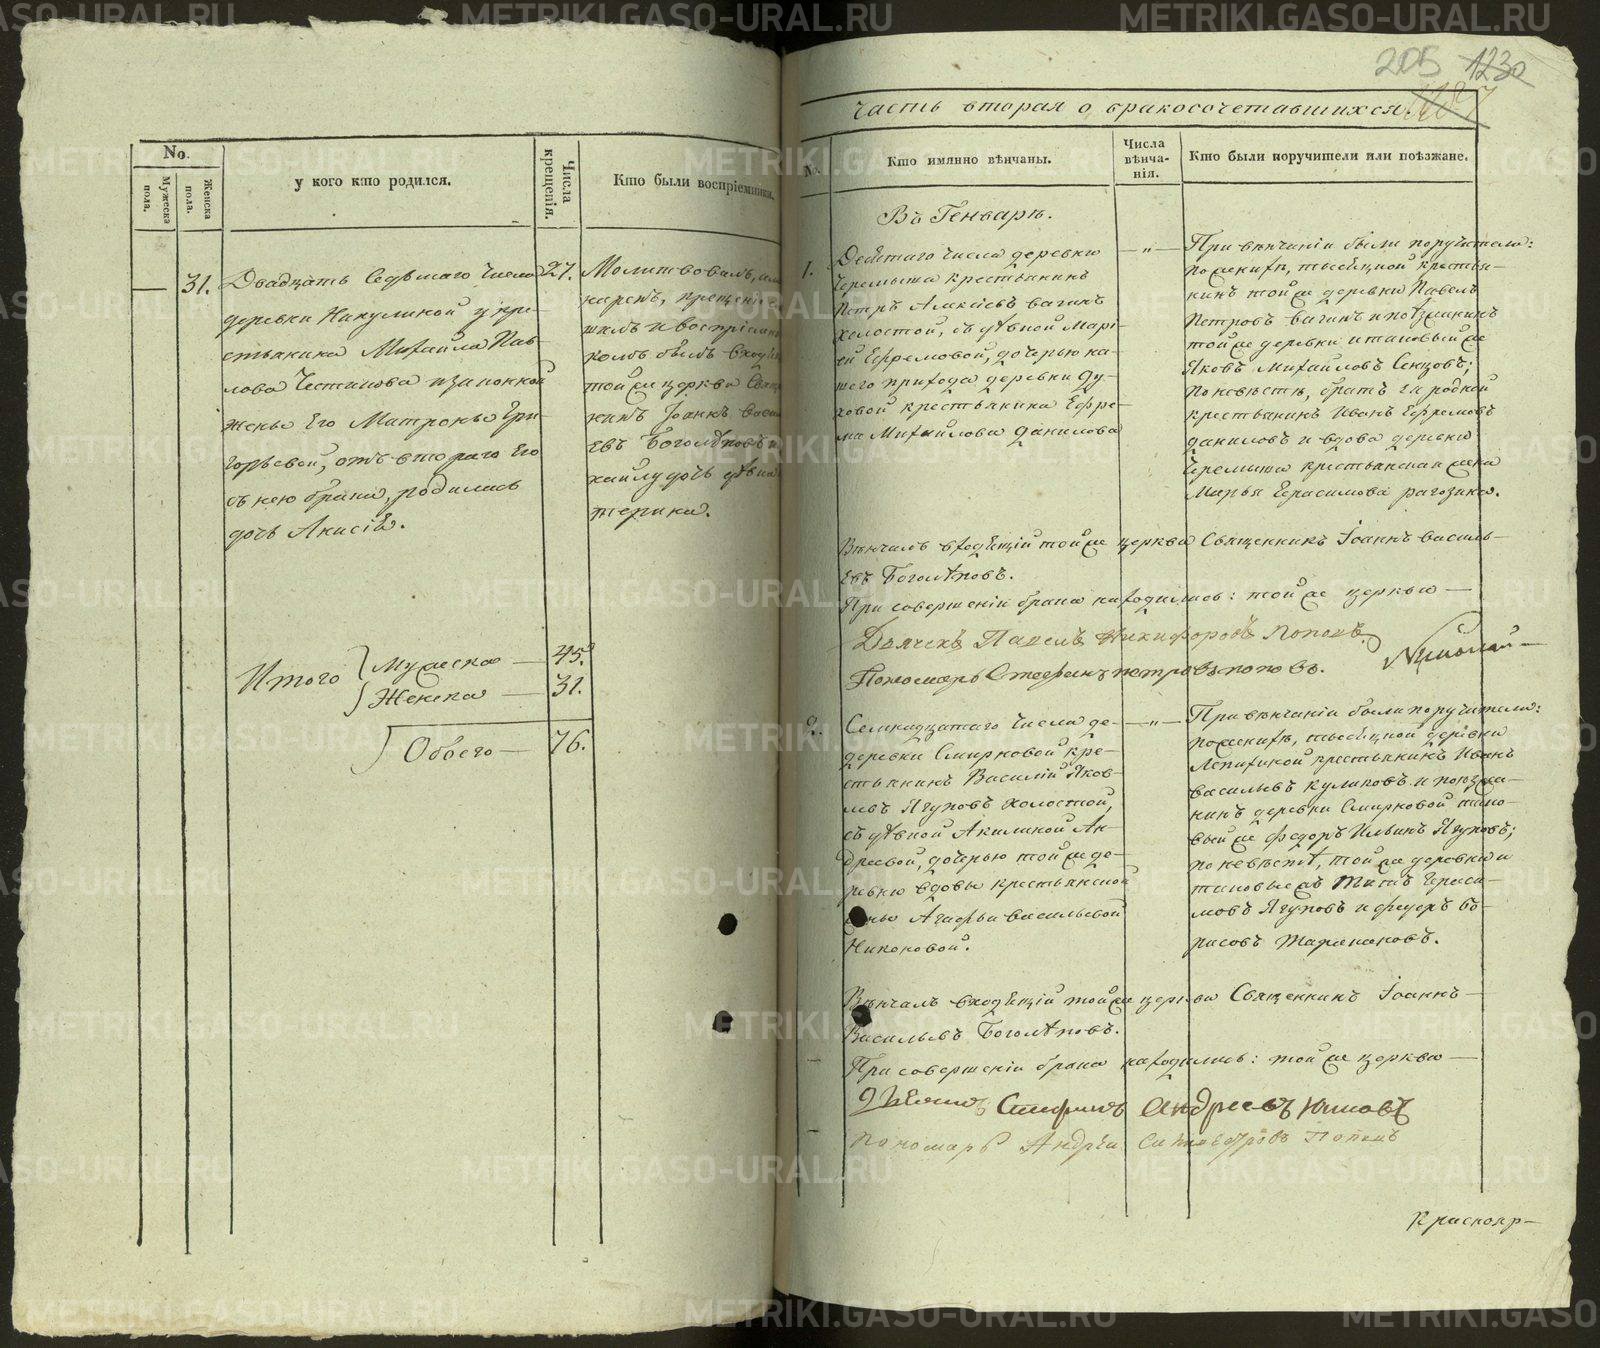 No.
Мужеска пола.
Женска пола.
у кого кто родился.
Числа крещенія.
Кто были воспріемники.
31.
Двадцать Седьмаго числа
деревни Никулиной у кре-
стьянина Михайла Пав-
лова Честикова изаконной
жены Его Матроны Гри-
горьевой, отъ втораго Его
съ нею брака, родилась
дочь Анисія.
27.
Молитвовалъ, им
нарекъ, крещеніе со
шилъ и воспріемни
комъ былъ вхоdя
той же церкви Свящ
никъ Іоаннъ Васи
Евъ Боголѣповъ и
хайлу дочь дѣвица
терина.
Итого
Мужеска — 45.
Женска — 31.
Обоего — 76.
205 1230
Часть вторая о бракосочетавшихся.
No.
Кто имянно вѣнчаны.
Числа вѣнча-нія.
Кто были поручители или поѣзжане.
Въ Генварѣ.
1.
Девятаго числа деревни
Черемыша крестьянинъ
Петръ Алексѣевъ Вагинъ
холостой, съ дѣвкой Марі-
ей Ефремовой, дочерью на-
шего прихода деревни Ду-
ховой крестьянина Ефре-
ма Михайлова Данилова
— „ —
При вѣнчаніи были поручители:
по женихѣ, тысяцкой крестья-
нинъ той же деревни Павелъ
Петровъ Вагинъ и поѣзжанинъ
той же деревни и таковый же
Яковъ Михайловъ Сенцовъ;
по невѣстѣ, братъ Ея родной
крестьянинъ Иванъ Ефремовъ
Даниловъ и вдова деревни
Черемыша крестьянская жена
Марья Герасимова Рагозина.
Вѣнчалъ входящій той же церкви Священникъ Іоаннъ Василь-
Евъ Боголѣповъ.
При совершеніи брака находились: той же церкви —
Дьячекъ Павелъ Никифоровъ Поповъ.
Пономарь Стефанъ Петровъ Поповъ.
Николай —
2.
Семнадцатаго числа де-
деревни Смирновой кре-
стьянинъ Василій Яков-
левъ Ягуповъ холостой,
съ дѣвкой Акилиной Ан-
дреевой, дочерью той же де-
ревни вдовы крестьянской
жены Агафьи Васильевой
Никоновой.
— „ —
При вѣнчаніи были поручители:
по женихѣ, тысяцкой деревни
Лепихиной крестьянинъ Иванъ
Васильевъ Куликовъ и поѣзжа-
нинъ деревни Смирновой тако-
вый же Федоръ Ильинъ Ягуповъ;
по невѣстѣ, той же деревни и
таковые жъ Титъ Гераси-
мовъ Ягуповъ и Федоръ Бо-
рисовъ Таракановъ.
Вѣнчалъ входящій той же церкви Священникъ Іоаннъ —
Васильевъ Боголѣповъ.
При совершеніи брака находились: той же церкви —
Дьяконъ Стефанъ Андреевъ Юшковъ
Пономарь Андрей Сильвестровъ Поповъ
Краснояр-
METRIKI.GASO-URAL.RU